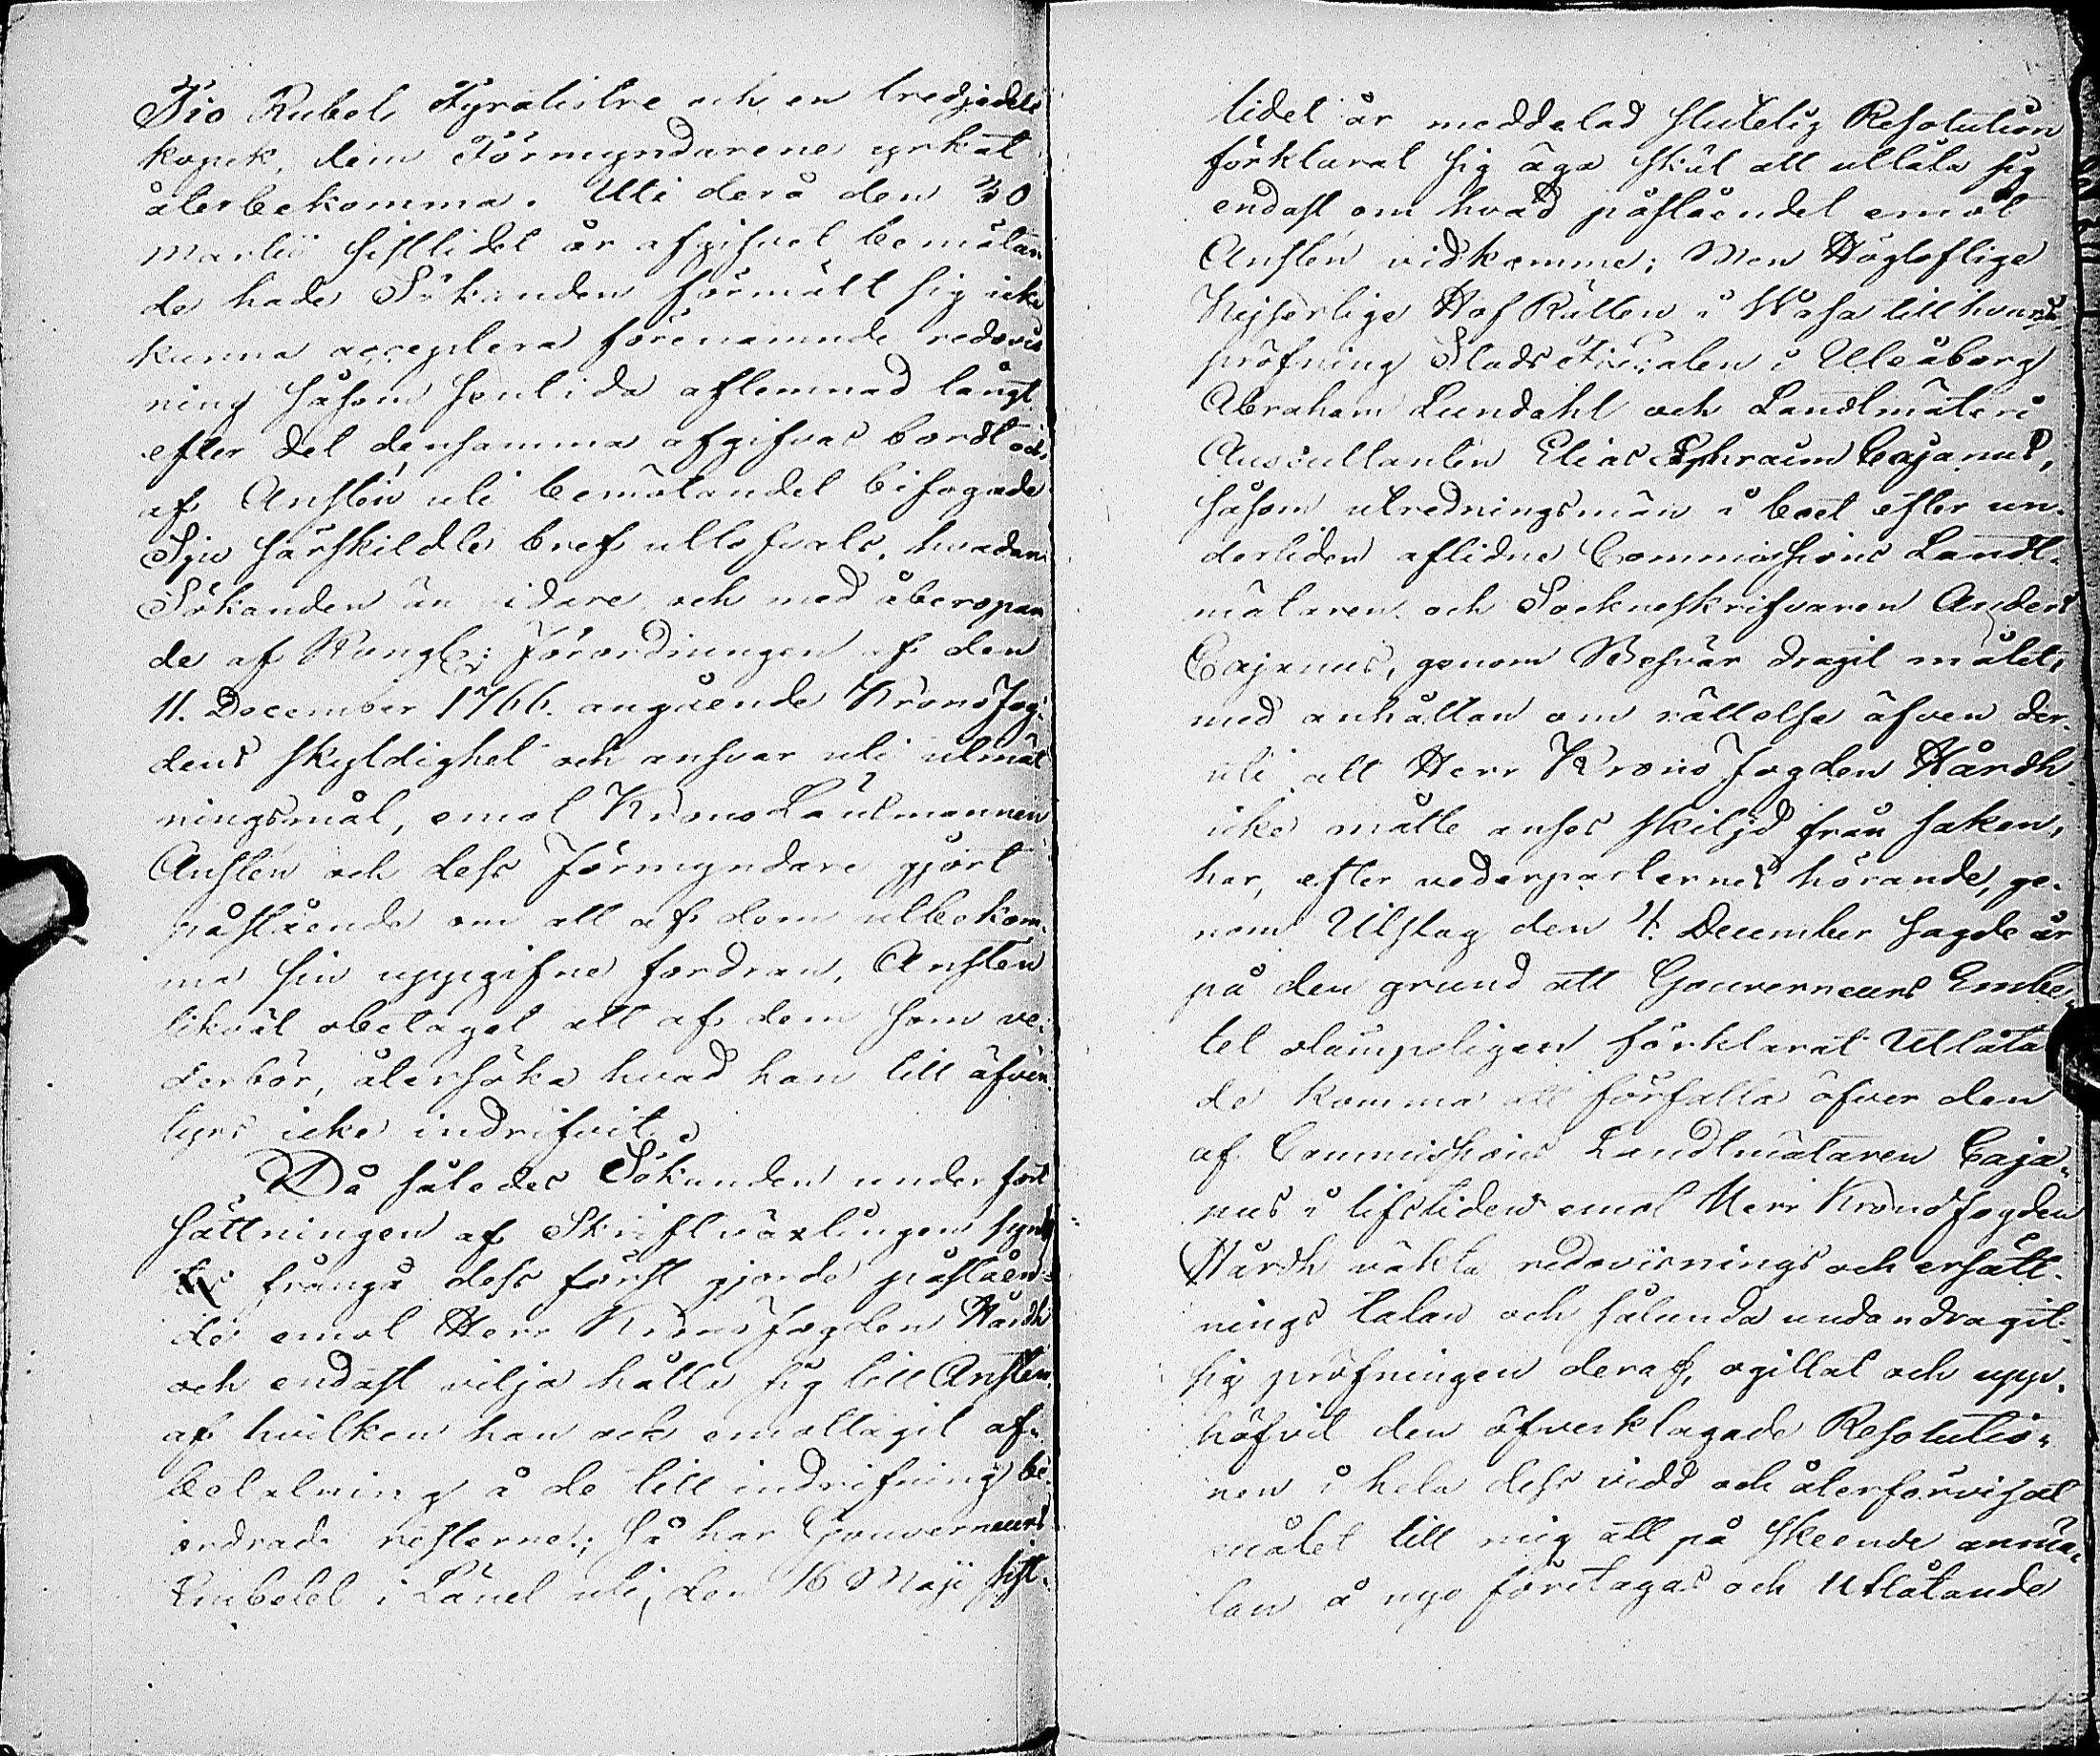 Tio Rubel Fyratiotre och en tredjedels
kopek, dem Förmyndarene yrkat
återbekomma. Uti derå den 30
Martii sistlidet år afgifvet bemötan
de hade Sökanden förmält sig icke
kunna acceptera förenämnde redovis
ning såsom sentida aflemnad långt
efter det densamma afgifvas bordt och
af Anstén uti bemötandet bifogade
Sju särskildte bref utlofvats, hvadan
Sökanden än vidare och med åberopan
de af Kongl: Förordningen af den
11. December 1766. angående Kronofog
dens skyldighet och ansvar uti utmät
ningsmål, emot KronoLänsmannen
Anstén och dess Förmyndare gjort
påstående om att af dem utbekom-
ma sin uppgifne fordran, Anstén
likväl obetaget att af dem som ve-
derbör, återsöka hvad han till äfven
tyrs icke indrifvit.
Då således Sökanden under fort
sättningen af Skriftväxlingen synts
frångå dess först gjorde påståen-
de emot Herr Kronofogden Hårdh
och endast vilja hålla sig till Anstén
af hvilken han ock emottagit af-
betalning å de till indrifning be-
ordrade resterne; så har Gouverneurs
Embetet i Länet uti, den 16 Maji sist-
lidet år meddelad slutelig Resolution
förklarat sig äga skäl att utlåta sig
endast om hvad påståendet emot
Anstén vidkomme; Men Högloflige
Kejserlige HofRätten i Wasa till hvars
pröfning StadsFiscalen i Uleåborg
Abraham Lundahl och Landtmäteri
Auscultanten Elias Ephraim Cajanus,
såsom utredningsmän i boet efter un-
dertiden aflidne Commissions Landt-
mätaren och Sockneskrifvaren Anders
Cajanus, genom Besvär dragit målet,
med anhållan om rättelse äfven der-
uti att Herr Kronofogden Hårdh
icke måtte anses skiljd från saken,
har, efter vederparternes hörande, ge-
nom Utslag den 4. December sagde år
på den grund att Gouverneurs Embe-
tet olämpeligen förklarat Utlåtan
de komma att förfalla öfver den
af Commissions Landtmätaren Caja-
nus i lifstiden emot Herr Kronofogden
Hårdh väkta redovisnings och ersätt-
nings talan och sålunda undandragit
sig pröfningen deraf, ogillat och upp-
häfvit den öfverklagade Resolutio-
nen i hela dess vidd och återförvisat
målet till mig att på skeende anmä-
lan å nyo företagas och Utlåtande